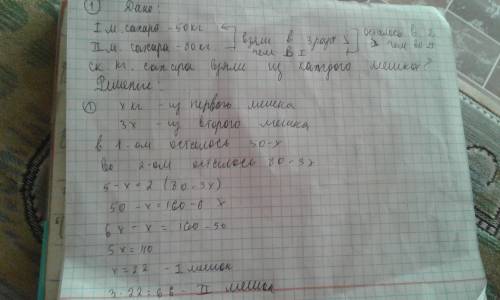 ① Дано:
I м. сахара - 50 кг
II м. сахара - 80 кг
взяли в 3 раза
чем в I
осталось в 2
чем во II
ск. кг. сахара взяли из каждого мешка?
Решение:
① x кг - из первого мешка
3x - из второго мешка
в 1-ом осталось 50-x
Во 2-ом осталось 80-3x
5-x=2(80-3x)
50-x=160-6x
6x-x=160-50
5x=110
x=22 - I мешок
3·22=66 - II мешок